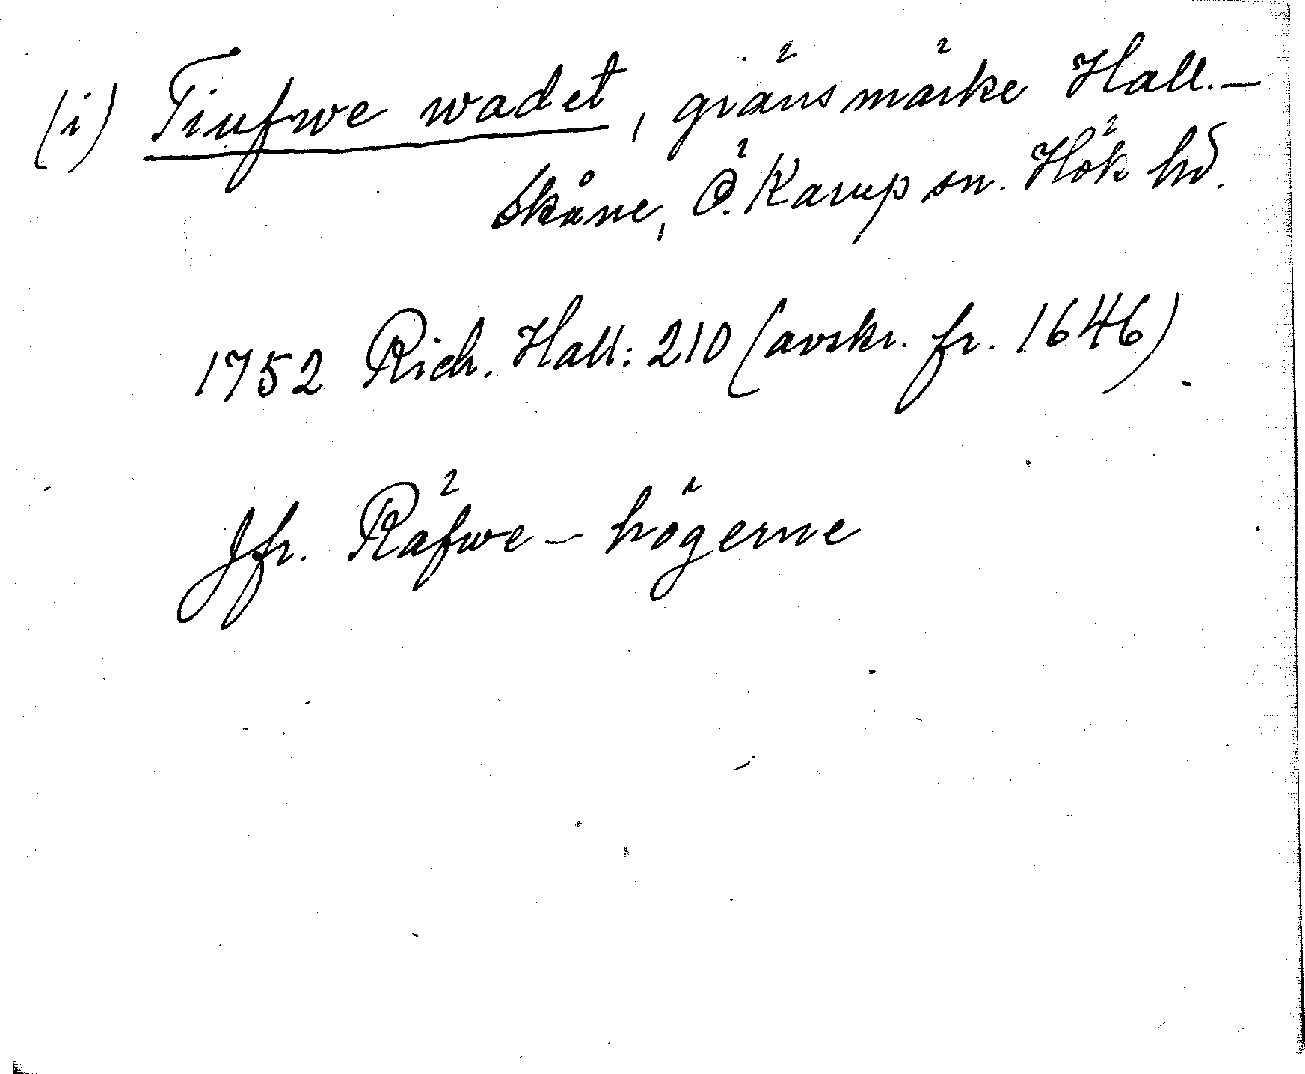 (i) Tiufwe wadet, gränsmärke Hall.-
Skåne, Ö. Karup sn. Hök hd.
1752 Rich. Hall: 210 (avskr. fr. 1646).
Jfr. Räfwe-högerne